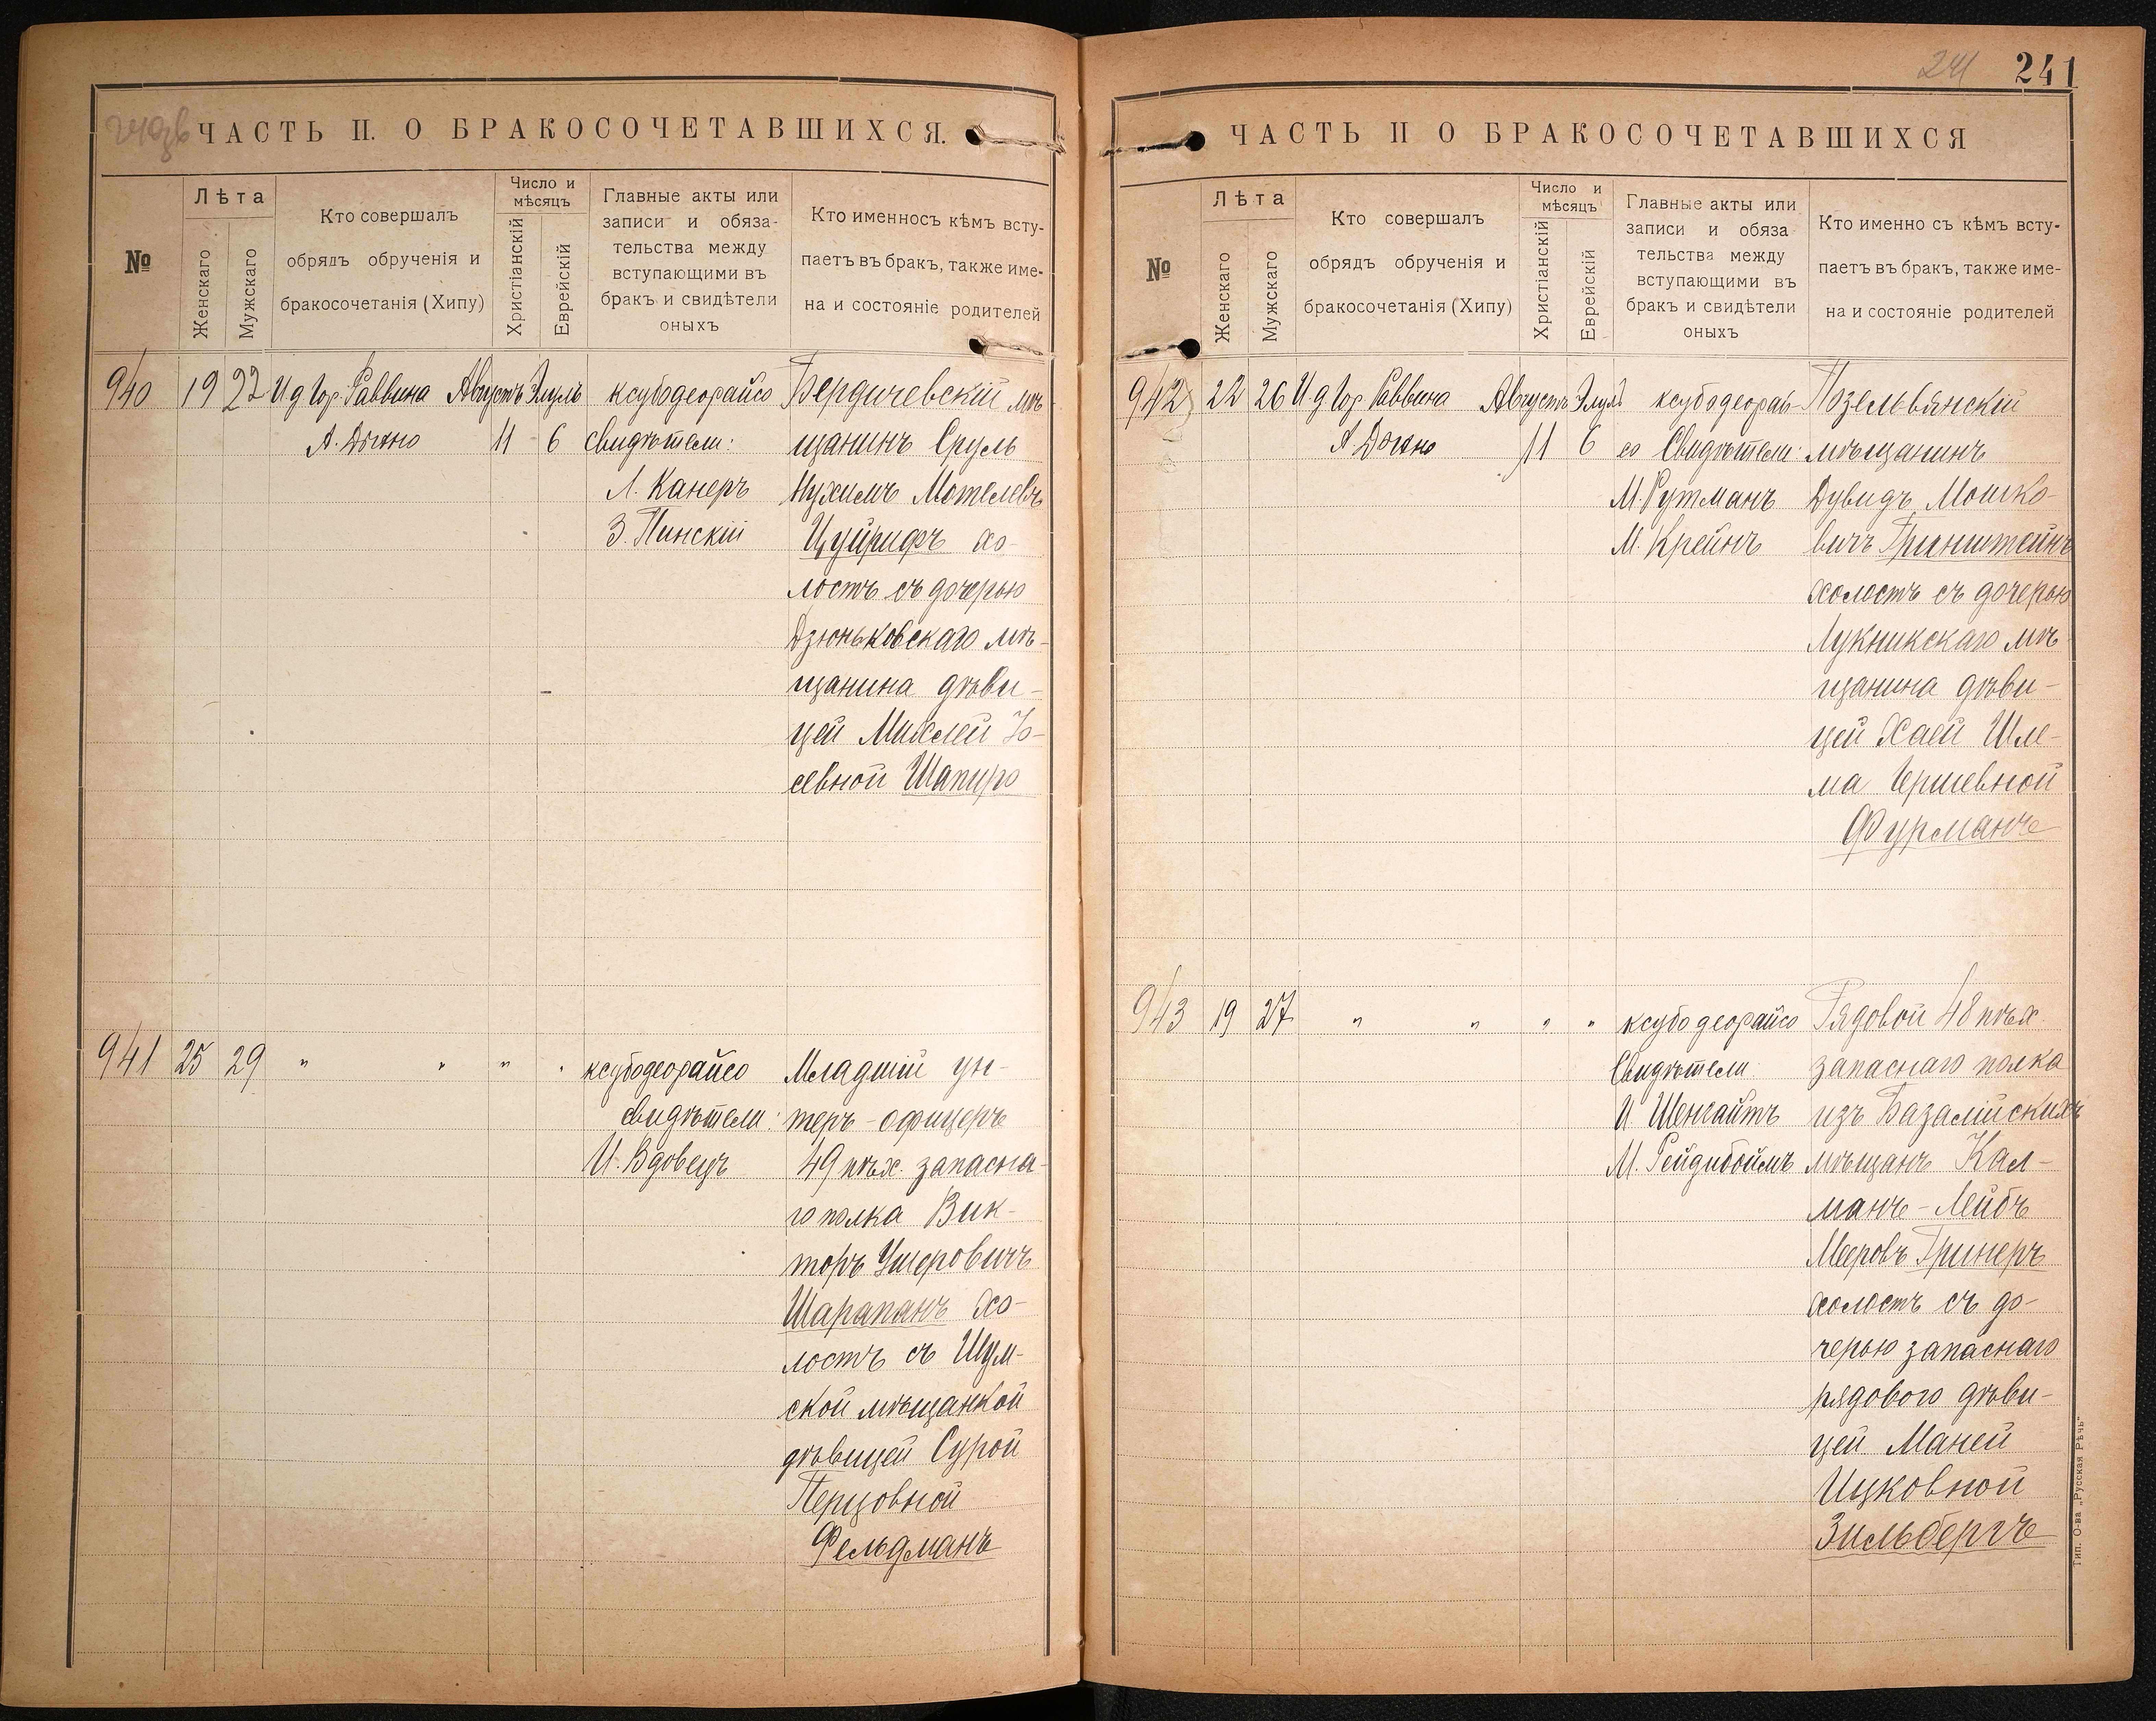 ЧАСТЬ II. О БРАКОСОЧЕТАВШИХСЯ.
№
Лѣта
Женскаго
Мужскаго
Кто совершалъ
обрядъ обрученія и
бракосочетанія (Хипу)
Число и
мѣсяцъ
Христіанскій
Еврейскій
Главные акты или
записи и обяза-
тельства между
вступающими въ
бракъ и свидѣтели
оныхъ
Кто именносъ кѣмъ всту-
паетъ въ бракъ, также име-
на и состояніе родителей
940 19 22 И д Гор. Раввина Августъ Элулъ ксубодеорайсо Бердичевскій мѣ-
А. Дохно 11 6 свидѣтели: щанинъ Сруль
Л. Канеръ Нухимъ Мотелевъ
З. Пинскій Цуйрифъ хо-
лостъ съ дочерью
Дзюньковскаго мѣ-
щанина дѣви-
цей Михлей Іо-
севной Шапиро
941 25 29 " " " " ксубодеорайсо Младшій ун-
свидѣтели: теръ-офицеръ
И. Вдовецъ 49 пѣх. запасна-
го полка Вик-
торъ Ушеровичъ
Шарапанъ хо-
лостъ съ Шум-
ской мѣщанкой
дѣвицей Сурой
Перцовной
Фельдманъ
241 241
ЧАСТЬ II О БРАКОСОЧЕТАВШИХСЯ
№
Лѣта
Женскаго
Мужскаго
Кто совершалъ
обрядъ обрученія и
бракосочетанія (Хипу)
Число и
мѣсяцъ
Христіанскій
Еврейскій
Главные акты или
записи и обяза
тельства между
вступающими въ
бракъ и свидѣтели
оныхъ
Кто именно съ кѣмъ всту-
паетъ въ бракъ, также име-
на и состояніе родителей
942 22 26 И. д Гор. Раввина Августъ Элулъ ксубодеорай- Позельвянскій
А. Дохно 11 6 со Свидѣтели: мѣщанинъ
М. Рутманъ Дувидъ Мошко-
М. Крейнъ вичъ Гринштейнъ
холостъ съ дочерью
Лукникскаго мѣ-
щанина дѣви-
цей Хаей Шле-
ма Гершевной
Фурманъ
943 19 27 " " " " ксубодеорайсо Рядовой 48 пѣх.
Свидѣтели запаснаго полка
И Шенгайтъ изъ Базалійскихъ
М. Рейдибоймъ мѣщанъ Кал-
манъ-Лейбъ
Мееровъ Гринеръ
холостъ съ до-
черью запаснаго
рядового дѣви-
цей Маней
Ицковной
Зильбергъ
Тип. О-ва „Русская Рѣчь"